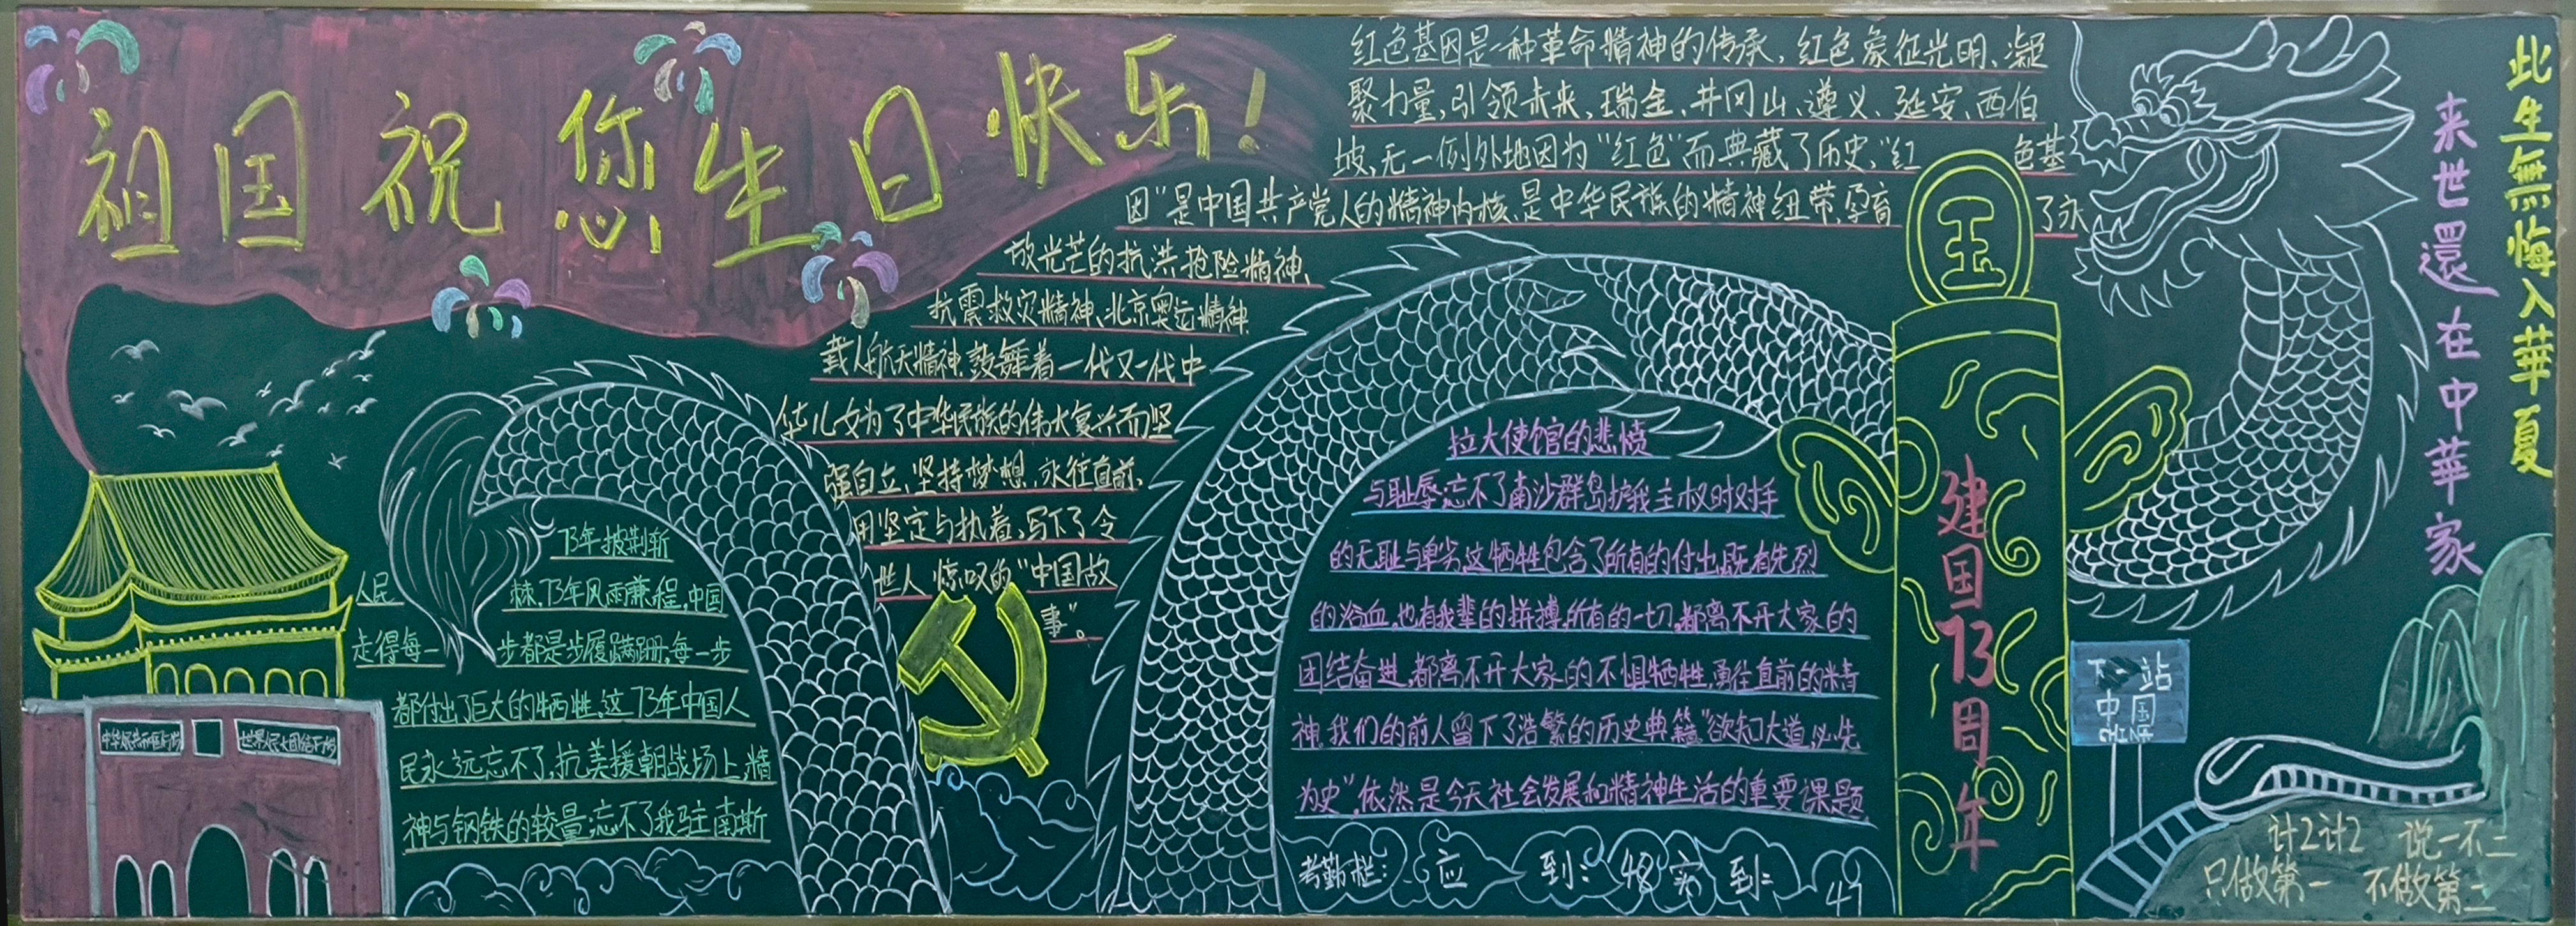 祖国祝您生日快乐！
红色基因是一种革命精神的传承，红色象征光明、凝
聚力量，引领未来，瑞金、井冈山、遵义、延安、西伯
坡，无一例外地因为“红色”而典藏了历史、“红 色基
因”是中国共产党人的精神内核，是中华民族的精神纽带，孕育 了永
放光芒的抗洪抢险精神、
抗震救灾精神、北京奥运精神
载人航天精神，鼓舞着一代又一代中
华儿女为了中华民族的伟大复兴而坚
强自立、坚持梦想，永往直前，
用坚定与执着，写下了令
世人 惊叹的“中国故
事”。
73年披荆斩
棘，73年风雨兼程，中国
人民
走得每一 步都是步履蹒跚，每一步
都付出了巨大的牺牲，这73年中国人
民永远忘不了，抗美援朝战场上，精
神与钢铁的较量，忘不了我驻南斯
拉大使馆的悲愤
与耻辱，忘不了南沙群岛护我主权时对手
的无耻与卑劣，这牺牲包含了所有的付出，既有先烈
的浴血，也有我辈的拼搏，所有的一切，都离不开大家的
团结奋进，都离不开大家的不惧牺牲，勇往直前的精
神，我们的前人留下了浩繁的历史典籍“欲知大道，必先
为史”，依然是今天社会发展和精神生活的重要课题，
考勤栏： 应 到：48 实 到： 47
建国73周年
此生無悔入華夏
来世還在中華家
下一站
中国
CHINA
计2计2 说一不二
只做第一 不做第二